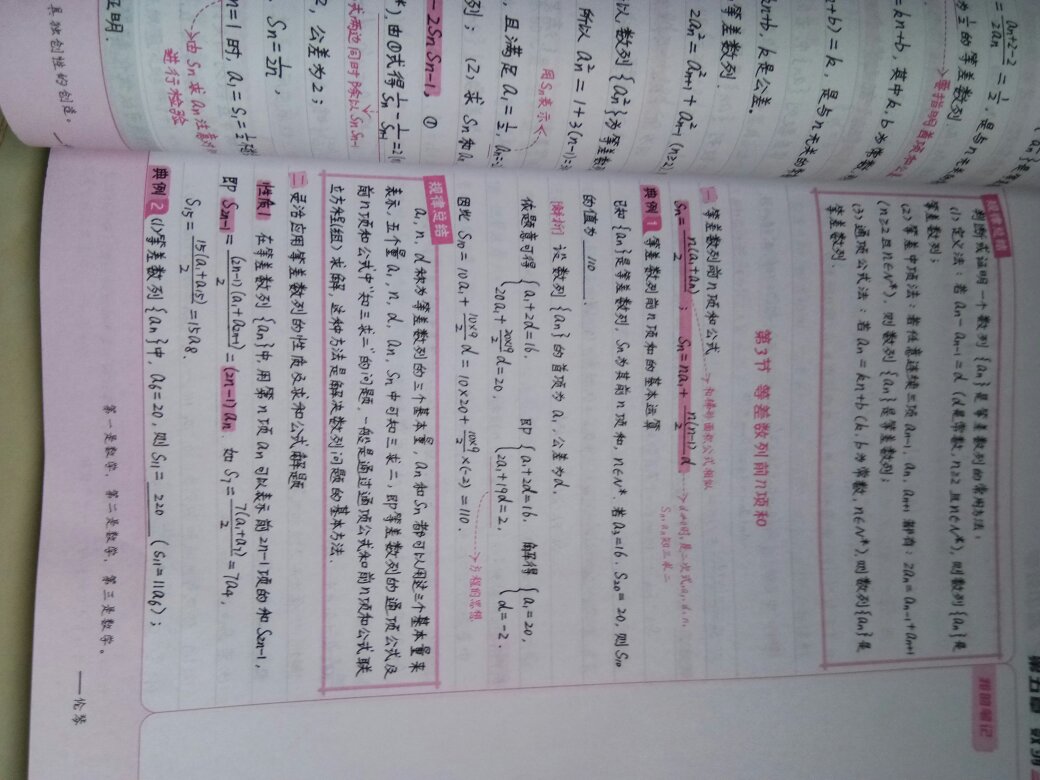 第五章 数列
我的笔记
规律总结
判断或证明一个数列{an}是等差数列的常用方法：
(1) 定义法：若 an－an-1＝d (d是常数, n≥2 且 n∈N*), 则数列{an}是
等差数列；
(2) 等差中项法：若任意连续三项 an-1, an, an+1 都有：2an＝an-1+an+1
(n≥2 且 n∈N*), 则数列{an}是等差数列；
(3) 通项公式法：若 an＝kn+b (k, b为常数, n∈N*), 则数列{an}是
等差数列.
第3节 等差数列前n项和
一 等差数列前n项和公式 → 和梯形面积公式相似
Sn＝n(a1+an)/2 ； Sn＝na1+n(n-1)/2 d → d≠0时, 是二次式, a1, d, n,
Sn, an知三求二
典例1 等差数列前n项和的基本运算
已知{an}是等差数列, Sn为其前n项和, n∈N*. 若a3＝16, S20＝20, 则S10
的值为 110 .
解析 设数列{an}的首项为a1, 公差为d,
依题意可得 { a1+2d＝16, 20a1+20×19/2 d＝20, 即 { a1+2d＝16, 2a1+19d＝2, 解得 { a1＝20, d＝-2.
→ 方程的思想
因此 S10＝10a1+10×9/2 d＝10×20+10×9/2×(-2)＝110.
规律总结
a1, n, d 称为等差数列的三个基本量, an和Sn都可以用这三个基本量来
表示, 五个量 a1, n, d, an, Sn中可知三求二, 即等差数列的通项公式及
前n项和公式中“知三求二”的问题, 一般是通过通项公式和前n项和公式联
立方程(组)求解, 这种方法是解决数列问题的基本方法.
二 灵活应用等差数列的性质及求和公式解题
性质1 在等差数列{an}中, 用第n项an可以表示前2n-1项的和S2n-1,
即 S2n-1＝(2n-1)(a1+a2n-1)/2＝(2n-1)an. 如 S7＝7(a1+a7)/2＝7a4,
S15＝15(a1+a15)/2＝15a8.
典例2 (1) 等差数列{an}中, a6＝20, 则S11＝ 220 (S11＝11a6)；
第一是数学，第二是数学，第三是数学。
——伦琴
＝an+2-2/2an＝1/2, 是与n无关
为1/2的等差数列
→ 要指明首项和公
＝kn+b, 其中k, b为常数
+b)＝k, 是与n无关的
kn+b, k是公差.
等差数列.
2an²＝a²n+1+a²n-1 (n≥2
以数列{an²}为等差数
所以 an²＝1+3(n-1)＝3
用Sn表示
且满足 a1＝1/2, an＝-2
列； (2) 求Sn和an
－2SnSn-1, ①
*) 由①式得 1/Sn－1/Sn-1＝2 (
式两边同时除以SnSn-1
2, 公差为2；
Sn＝1/2n,
n＝1时, a1＝S1＝1/2
→ 由Sn求an注意对
进行检验
证明.
具独创性的创造。